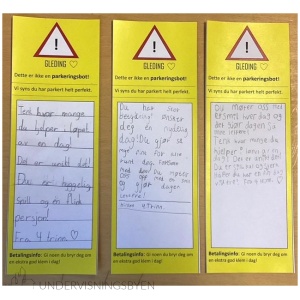 !
GLEDING ♡
Dette er ikke en parkeringsbot!
Vi syns du har parkert helt perfekt.
Tenk hvor mange
du hjelper i løpet
av en dag!
Det er snilt det!
Du er hyggelig,
snill og en flink
person!
Fra 4 trinn ♡
Betalingsinfo: Gi noen du bryr deg om
en ekstra god klem i dag!
!
GLEDING ♡
Dette er ikke en parkeringsbot!
Vi syns du har parkert helt perfekt.
Du har stor
betydning! ønsker
deg en nydelig
dag! Du gjør så
mye bra for alle
rundt deg. Fortsett
med det! Du møter
oss med et smil
og gjør dagen
bedre!
4 trinn
Betalingsinfo: Gi noen du bryr deg om
en ekstra god klem i dag!
!
GLEDING ♡
Dette er ikke en parkeringsbot!
Vi syns du har parkert helt perfekt.
Du møter oss med
et smil hver dag og
gjør dagen
Tenk hvor mange du
hjelper i løpet av en
dag! Det er snilt det!
Fra 4. trinn
Betalingsinfo: Gi noen du bryr deg om
en ekstra god klem i dag!
UNDERVISNINGSBYEN